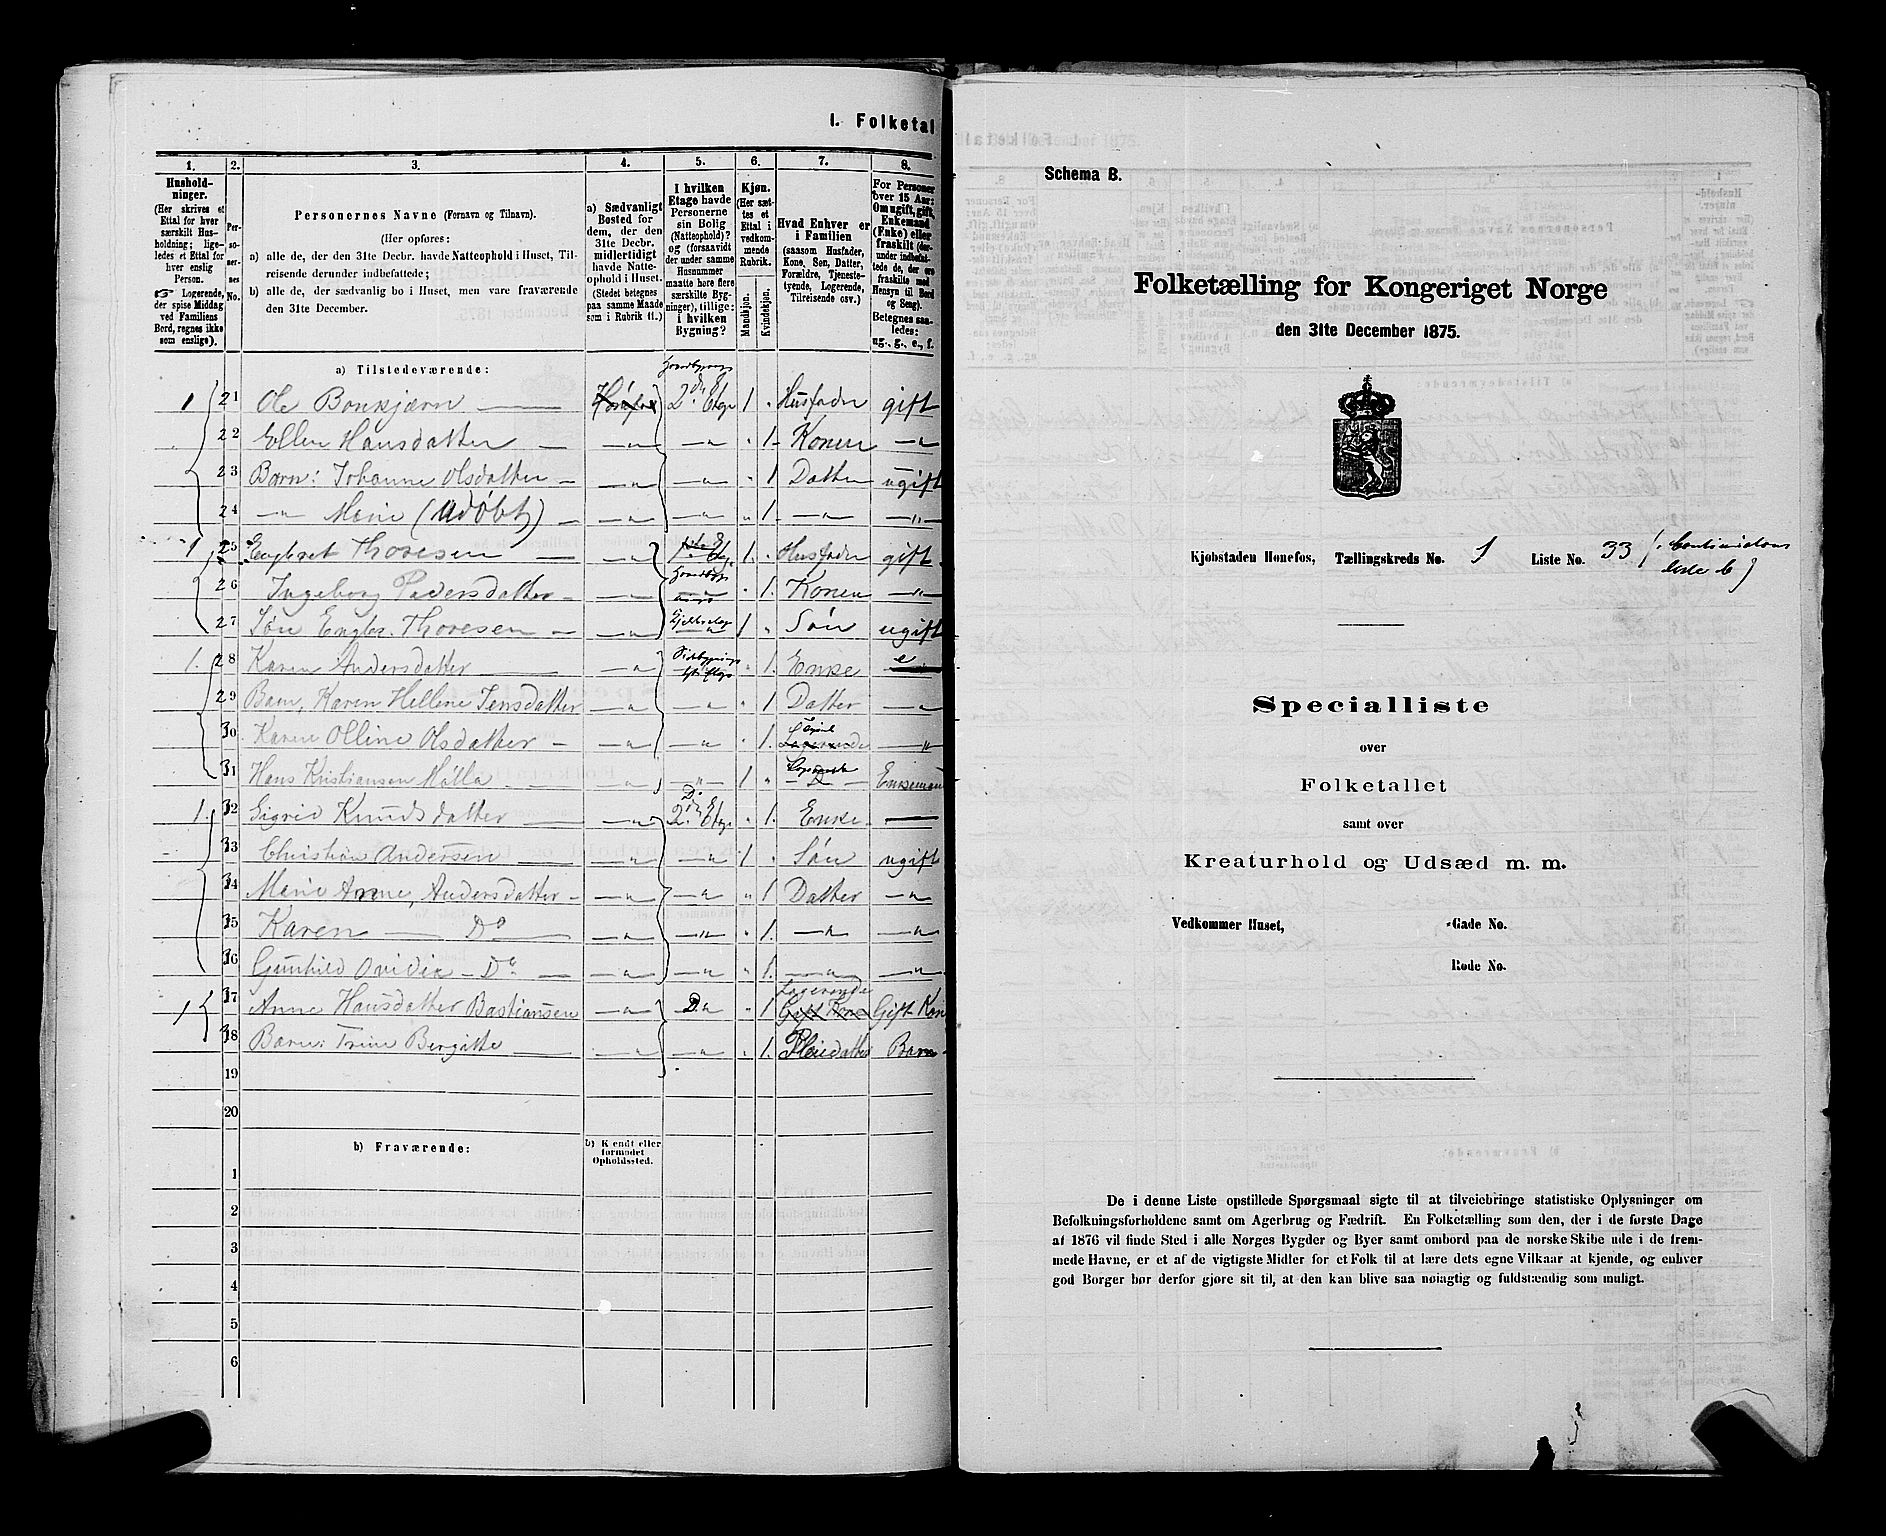 I. Folketal
1.
2.
3.
4.
5.
6.
7.
8.
Hushold-
ninger.
(Her skrives et
Ettal for hver
særskilt Hus-
holdning; lige-
ledes et Ettal for
hver enslig
Person.
Logerende,
der spise Middag
ved Familiens
Bord, regnes ikke
som enslige).
Per-
so-
ner-
nes
No.
Personernes Navne (Fornavn og Tilnavn).
(Her opføres:
a) alle de, der den 31te Decbr. havde Natteophold i Huset, Til-
reisende derunder indbefattede;
b) alle de, der sædvanlig bo i Huset, men vare fraværende
den 31te December.
a) Sædvanligt
Bosted for
dem, der den
31te Decbr.
midlertidigt
havde Natte-
ophold i Huset.
(Stedet betegnes
paa samme Maade
som i Rubrik 11.)
I hvilken
Etage havde
Personerne
sin Bolig
(Natteophold)?
og (forsaavidt
der under samme
Husnummer
maatte høre flere
særskilte Byg-
ninger), tillige:
i hvilken
Bygning?
Kjøn.
(Her sæt-
tes et
Ettal i
vedkom-
mende
Rubrik.
Mandkjøn.
Kvindekjøn.
Hvad Enhver er
i Familien
(saasom Husfader,
Kone, Søn, Datter,
Forældre, Tjeneste-
tyende, Logerende,
Tilreisende osv.)
For Personer
over 15 Aar:
Om ugift, gift,
Enkemand
(Enke) eller
fraskilt (der-
under indbefat-
tede de, der ere
fraskilte med
Hensyn til Bord
og Seng).
Betegnes saa-
ledes:
ug., g., e., f.
a) Tilstedeværende:
1 21 Ole Bonkjærn 2den Etage 1 " Husfader gift
22 Ellen Hansdatter — " — " " 1 Konen — "
23 Barn: Johanne Olsdatter — " — " " 1 Datter ugift
24 — " — Marie (Udøbt) — " — " " 1 — " — "
1 25 Engebret Thoresen — " 1 " Husfader gift
26 Ingeborg Pedersdatter — " " 1 Konen — "
27 Søn Engbr. Thoresen — " 1 " Søn ugift
1. 28 Karen Andersdatter — " Sidbygnings " 1. Enke e
29 Barn, Karen Hellene Jensdatter — " — " " 1 Datter — "
30 Karen Olline Olsdatter — " — " " 1. Logerende — "
31 Hans Kristiansen Mølla " — " 1 " Enkemand
1. 32 Sigrid Knudsdatter — " Do 2den Etage " 1. Enke —
33 Christian Andersen — " — " 1 " Søn ugift
34 Marie Anne, Andersdatter — " — " " 1 Datter — "
35 Karen — Do — " — " " 1. — " — "
36 Gunhild Ovidia — Do — " — " " 1. — " — "
1 37 Anne Hansdatter Bastiansen — " " 1 Logerende Gift Kone Gift Kone
38 Barn: Trine Bergitte — " — " " 1. Pleiedatter Barn
19
20
b) Fraværende:
b) Kjendt eller
formodet
Opholdssted.
1
2
3
4
5
6
Schema B.
Folketælling for Kongeriget Norge
den 31te December 1875.
Kjøbstaden Hønefos, Tællingskreds No. 1 Liste No. 33
Specialliste
over
Folketallet
samt over
Kreaturhold og Udsæd m. m.
Vedkommer Huset, -Gade No.
Rode No.
De i denne Liste opstillede Spørgsmaal sigte til at tilveiebringe statistiske Oplysninger om
Befolkningsforholdene samt om Agerbrug og Fædrift. En Folketælling som den, der i de første Dage
af 1876 vil finde Sted i alle Norges Bygder og Byer samt ombord paa de norske Skibe ude i de frem-
mede Havne, er et af de vigtigste Midler for et Folk til at lære dets egne Vilkaar at kjende, og enhver
god Borger bør derfor gjøre sit til, at den kan blive saa nøiagtig og fuldstændig som muligt.